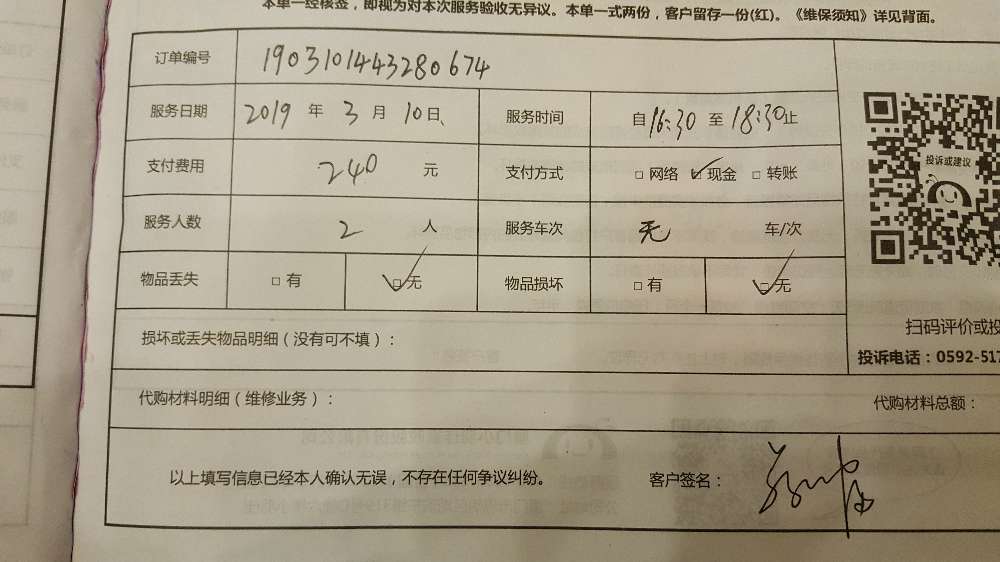 本单一经核签，即视为对本次服务验收无异议。本单一式两份，客户留存一份(红)。《维保须知》详见背面。
订单编号 1903101443280674
服务日期 2019 年 3 月 10 日 服务时间 自 16:30 至 18:30 止
支付费用 240 元 支付方式 □ 网络 ☑ 现金 □ 转账
服务人数 2 人 服务车次 无 车/次
物品丢失 □ 有 ☑ 无 物品损坏 □ 有 ☑ 无
投诉或建议
损坏或丢失物品明细（没有可不填）：
扫码评价或投
投诉电话：0592-517
代购材料明细（维修业务）：
代购材料总额：
以上填写信息已经本人确认无误，不存在任何争议纠纷。 客户签名：